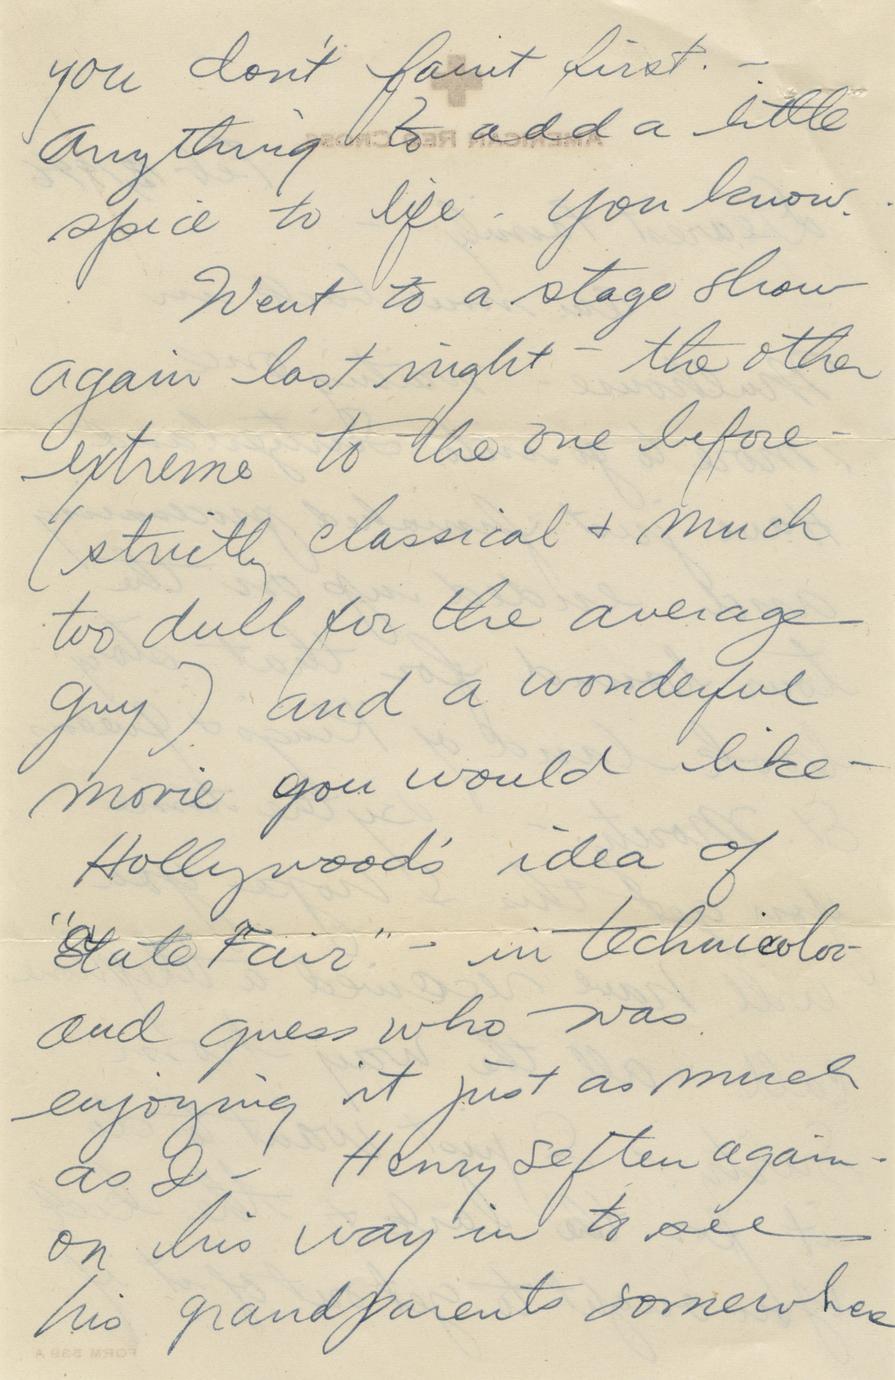 you don't faint first. -
Anything to add a little
spice to life - you know.
Went to a stage show
again last night - the other
extreme to the one before -
(strictly classical & much
too dull for the average
guy) and a wonderful
movie you would like -
Hollywood's idea of
"State Fair" - in technicolor
and guess who was
enjoying it just as much
as I - Henry Seften again -
on his way in to see
his grandparents somewhere
AMERICAN RED CROSS
FORM 539 A